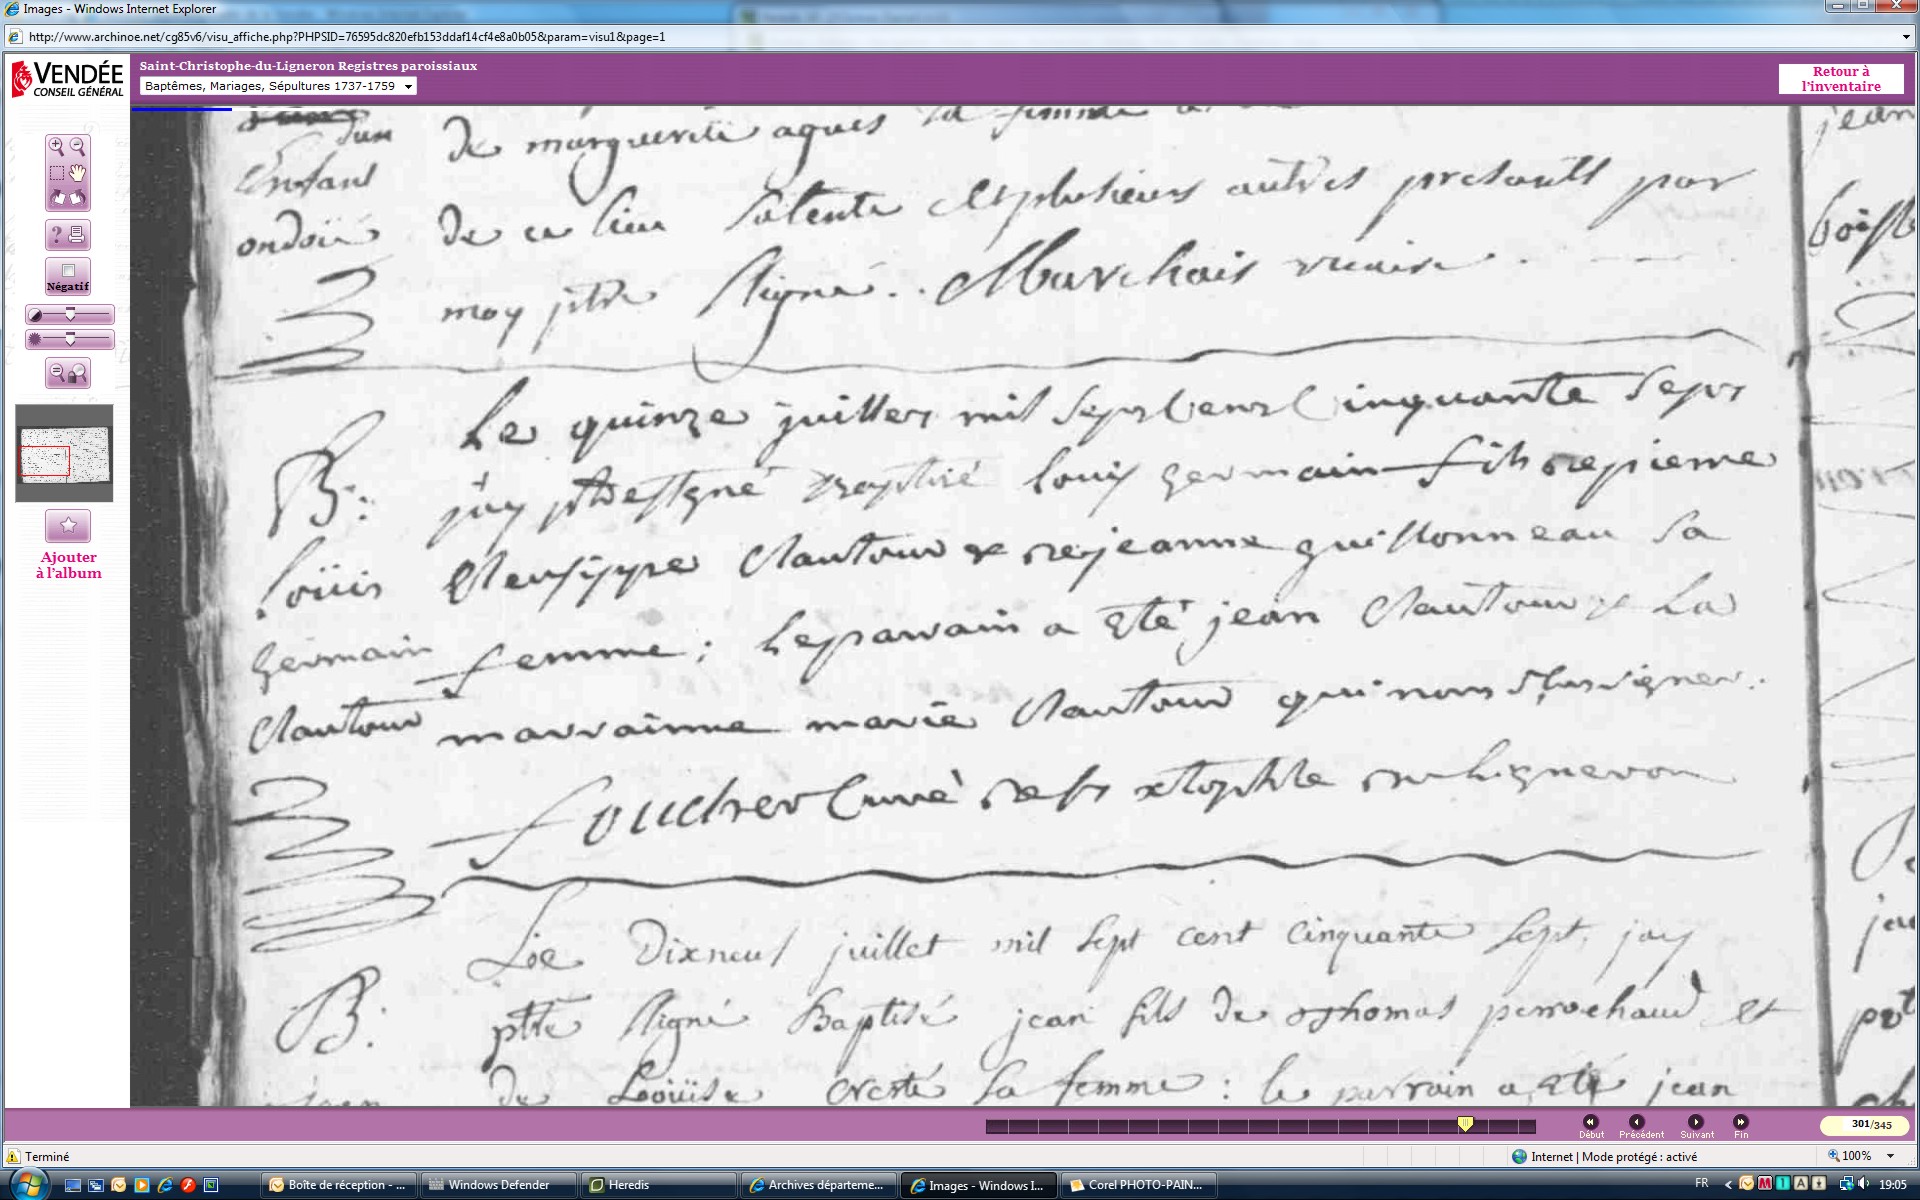 Images - Windows Internet Explorer
http://www.archinoe.net/cg85v6/visu_affiche.php?PHPSID=76595dc820efb153ddaf14cf4e8a0b05&param=visu1&page=1
VENDÉE
CONSEIL GÉNÉRAL
Saint-Christophe-du-Ligneron Registres paroissiaux
Baptêmes, Mariages, Sépultures 1737-1759
Retour à
l'inventaire
Négatif
Ajouter
à l'album
dun
Enfant
ondoïé
de marguerite agues sa femme
de ce lieu plusieurs autres presants par
moy ptre signé.. Marchais vicaire
B:
Loüis
germain
Cantour
Le quinze juillet mil sept Cent Cinquante sept
j'ay ptre sgné Baptisé louis germain fils de pierre
jeanne guillonneau sa
femme; le parain a Eté jean La
marrainne marie qui
foucher Curé de st xtophle du Ligneron
B:
jean
Le Dixneuf juillet mil sept cent cinquante sept, jay
ptre signé Baptisé jean fils de Thomas perrochaud et
de Loüise sa femme: le parrain a eté jean
jean
Début
Précédent
Suivant
Fin
301/345
Terminé
Internet | Mode protégé : activé
100%
Boîte de réception - ...
Windows Defender
Heredis
Archives départeme...
Images - Windows I...
Corel PHOTO-PAIN...
FR
19:05